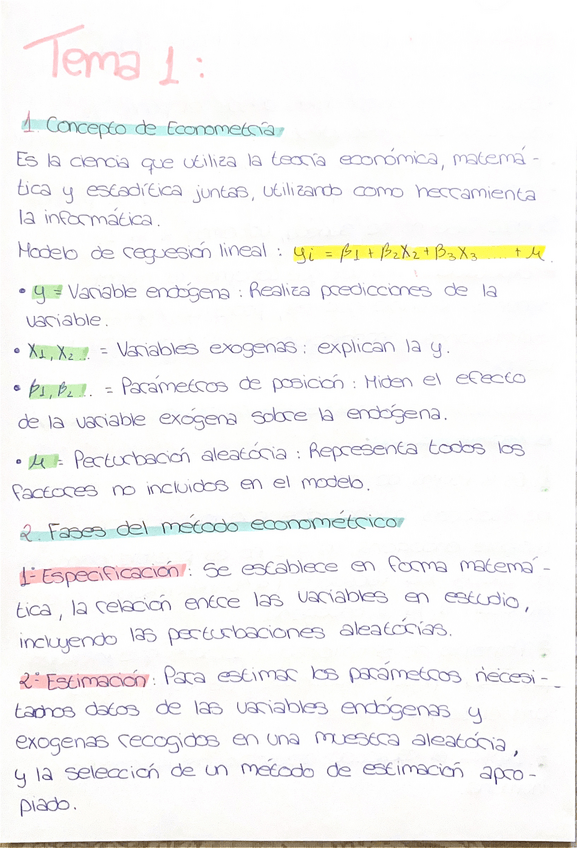 Tema 1:
1 Concepto de Econometría
Es la ciencia que utiliza la teoría económica, matemá-
tica y estadítica juntas, utilizando como herramienta
la informática.
Modelo de reguesión lineal : yi = β1 + β2X2 + β3X3 .... + μ
• y = Variable endógena : Realiza predicciones de la
variable.
• X1, X2 ... = Variables exogenas : explican la y.
• β1, β2 ... = Parámetros de posición : Miden el efecto
de la variable exógena sobre la endógena.
• μ = Perturbación aleatória : Representa todos los
factores no incluidos en el modelo.
2. Fases del método econométrico
1- Especificación : Se establece en forma matemá-
tica, la relación entre las variables en estudio,
incluyendo las perturbaciones aleatórias.
2- Estimación : Para estimar los parámetros necesi-
tamos datos de las variables endógenas y
exogenas recogidos en una muestra aleatória,
y la selección de un método de estimación apro-
piado.